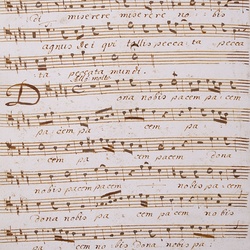 miserere miserere no bis
agnus dei qui tollis pecca ta pecca
ta peccata mundi.
Dona nobis pacem pacem
pa cem pa cem pa
cem pa cem pa cem
nobis pacem pacem nobis pacem
dona nobis pa cem dona nobis
pa cem no bis Dona nobis pa: